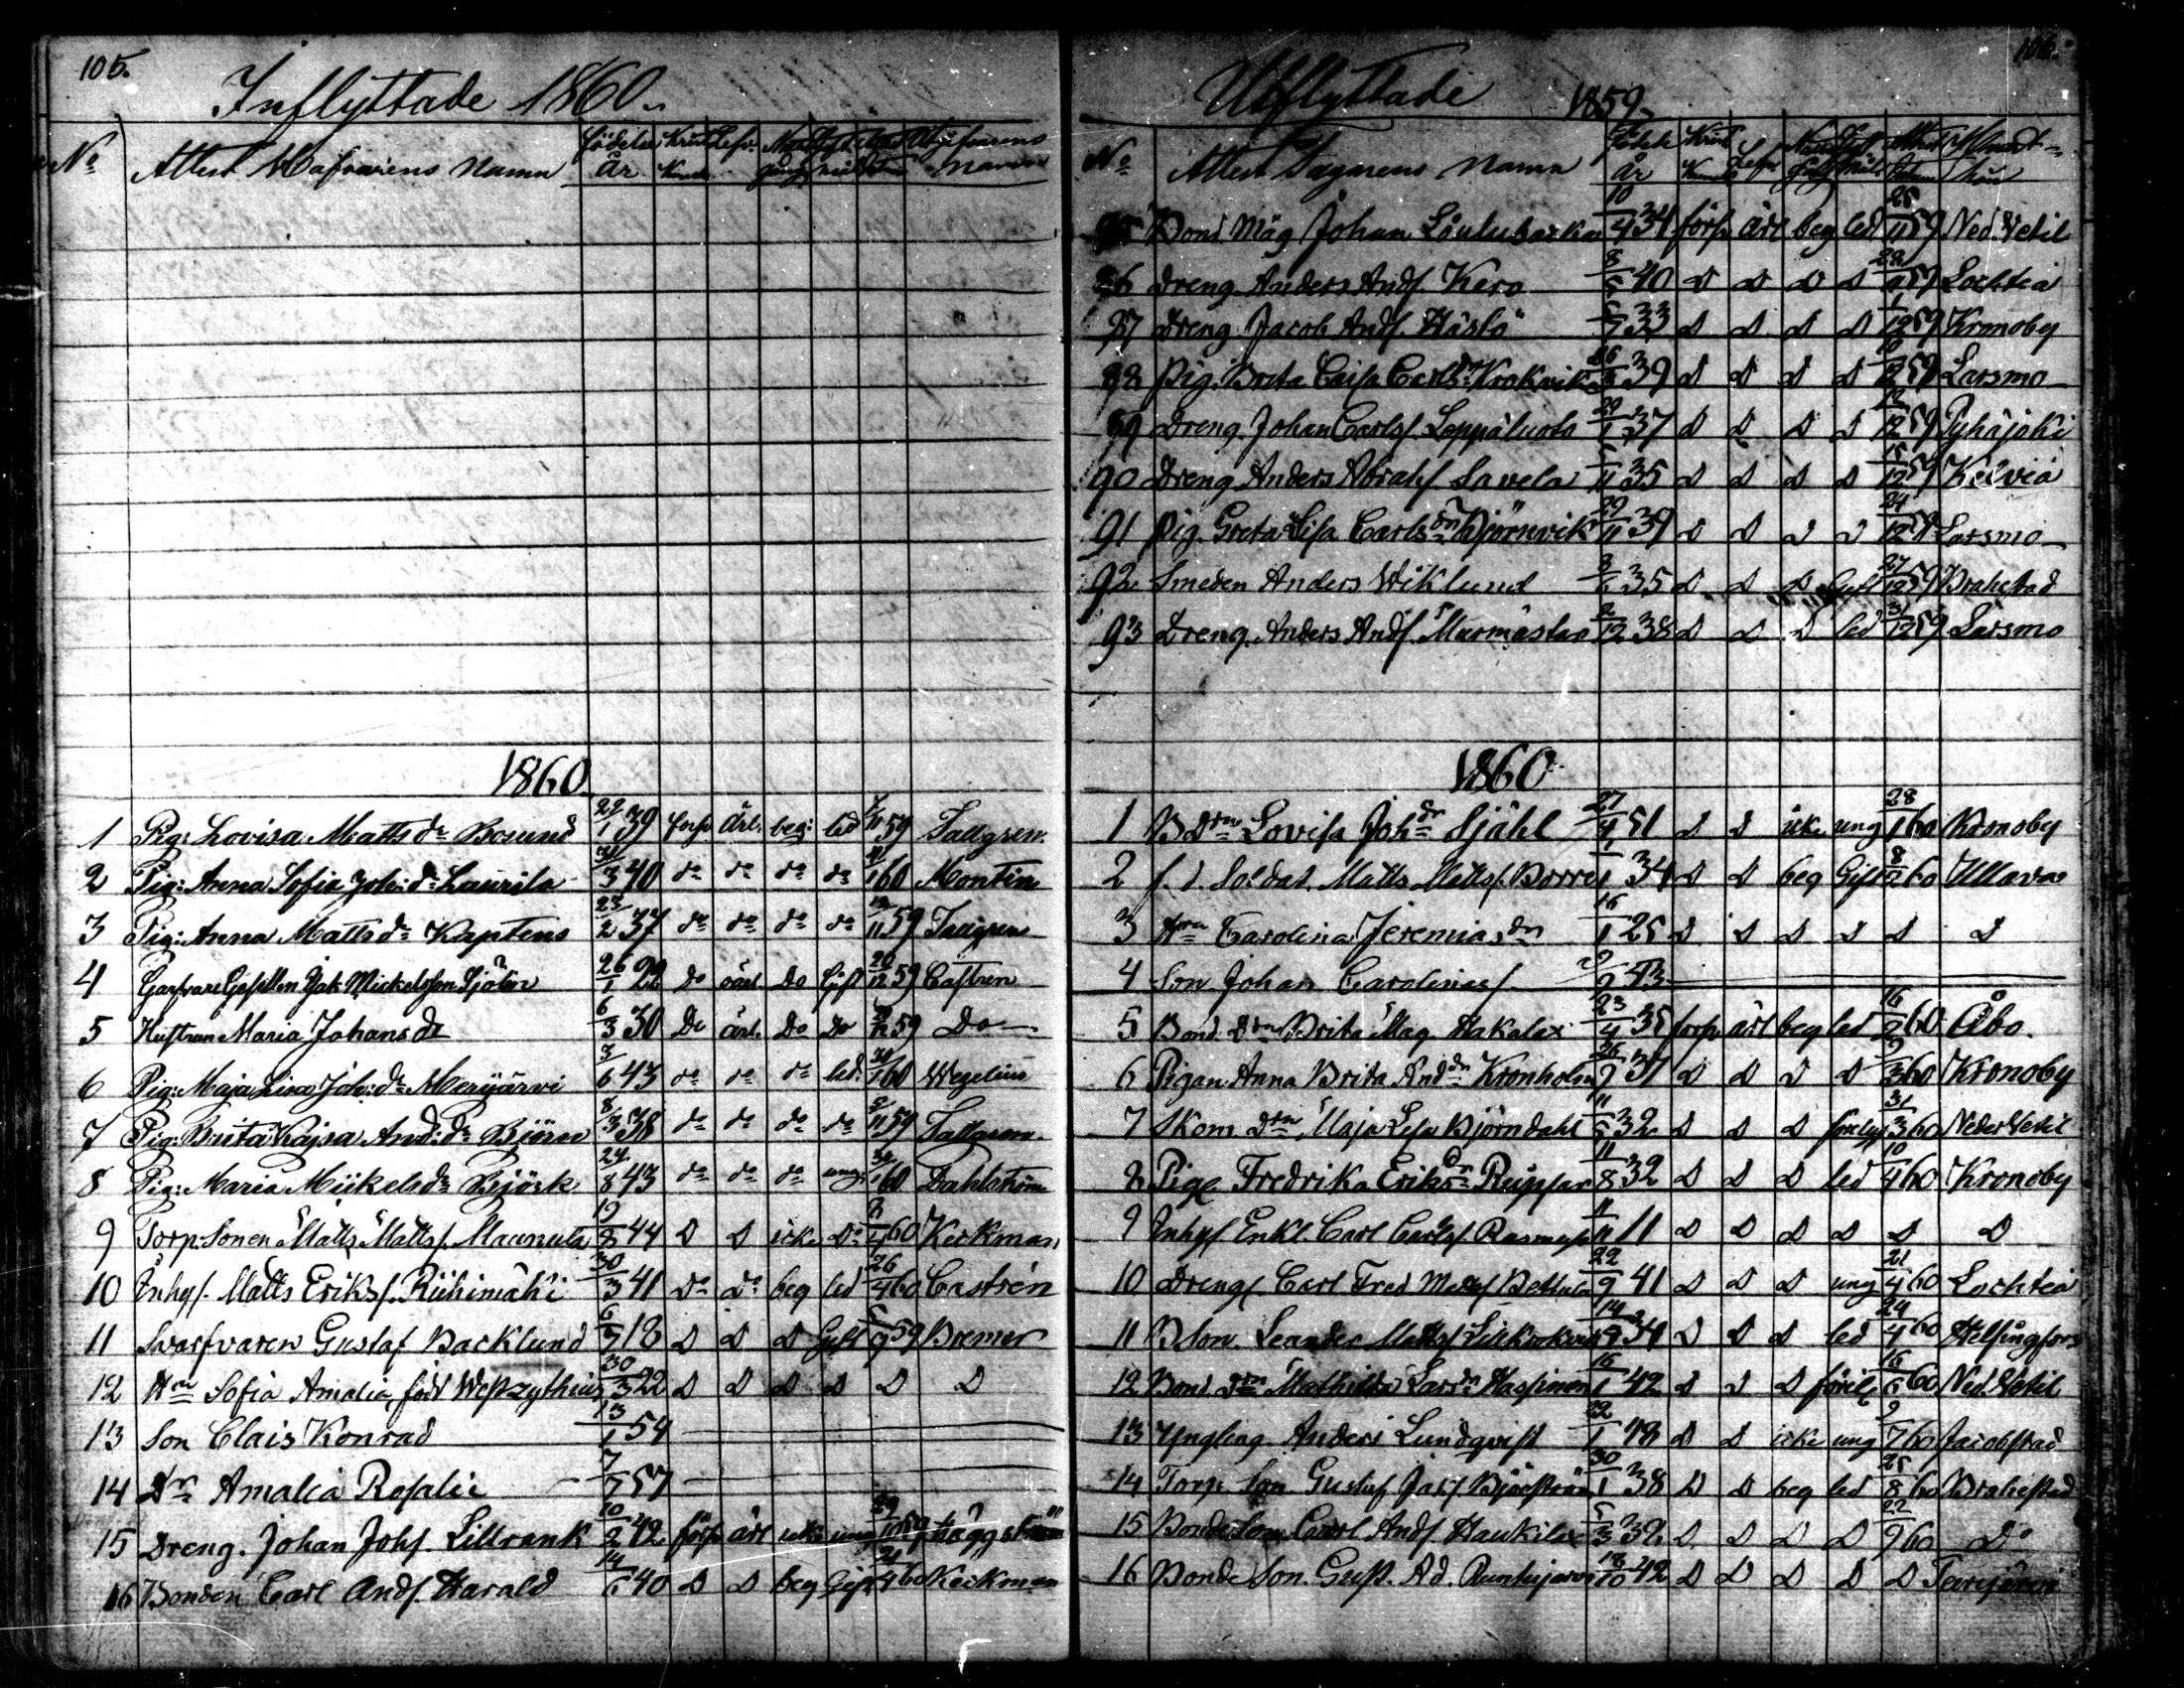 105.
Inflyttade 1860.
No Attest Hafvarens Namn Födelse År Krist Kund Lefv. Natt gång
1860
1 Pig. Lovisa Matts dr Bosund 22/1 39 förs. ärl. beg. led 7/11 59 Tallgren.
2 Pig: Anna Sofia Joh: dr Laurila 31/3 40 do do do do 11/1 60 Montin
3 Pig: Anna Matts dr Kaptens 23/2 37 do do do do 12/11 59 Tallgren
4 Garfvare Gesellen Jak Mickelsson Sjölin 26/1 22 Do oärl. Do Gift 20/12 59 Castren
5 Hustrun Maria Johans dr 6/3 30 Do ärl. Do Do 20/12 59 Do
6 Pig: Maja Lisa Joh: dr Merijärvi 3/6 43 do do do led. 60 Wegelius
7 Pig: Brita Kajsa And: dr Björn 8/3 38 do do do do 59 Tallgren
8 Pig: Maria Mickels dr Björk 24/8 43 do do do ung. 60 Dahlström
9 Torp. Sonen Matts Mattsf. Maunula 19/8 44 D D icke Do 60 Keckman
10 Inhys. Matts Eriksf. Riihimäki 30/3 41 Do Do beg led 26/4 60 Castrén
11 Svarfvaren Gustaf Backlund 6/9 18 D D D Gift 5/9 59 Bremer
12 Hn Sofia Amalia, född Westzythius 30/3 22 D D D D D D
13 Son Clais Konrad 13/1 54
14 Dr Amalia Rosalie 7/7 57
15 Dreng. Johan Johs. Lillrank 10/2 42 förs ärl icke ung 29/10 59 Häggström
16 Bonden Carl Andf. Harald 14/6 40 D D beg Gift 21/4 60 Keckman
106.
Utflyttade 1859
No Attest Tagarens Namn Födelse År Krist Kunsk Lefv
Bond. Måg Johan 10/4 34 förs ärl beg led 25/11 59 Ned. Vetil
86 Dreng Anders Andf. Kero 8/5 40 D D D D 59 Lochteå
87 Dreng Jacob Andf. Hästö 33 D D D D 1/12 59 Kronoby
88 Pig. Brita Caisa Carls dr Krokvik 39 D D D D 59 Larsmo
89 Dreng. Johan Carlsf. Leppäluoto 29/1 37 D D D D 12/12 59 Pyhäjoki
90 Dreng Anders Abrahf. Savela 11 35 D D D D 15/12 59 Kelviå
91 Pig. Greta Lisa Carls dr Björnvik 29/11 39 D D D D 24/12 59 Larsmo
92 Smeden Anders Wiklund 3/6 35 D D D Gift 27/12 59 Brahestad
93 Dreng. Anders Andf. Murmästar 2/12 38 D D D led 31/12 59 Larsmo
1860
1 B Drn Lovisa Joh dr Själ 27/4 51 D D icke ung 28/1 60 Kronoby
2 f. d. Soldat. Matts Mattsf. Borre 34 D D beg Gift 8/2 60 Ullava
3 Hrn Carolina Jeremias dr 16/1 25 D D D D D D
4 Son Johan Carolinas 43
5 Bond. Drn Brita Mag. Hakalax 23/4 35 förs ärl beg led 16/2 60 Åbo.
6 Pigan Anna Brita And dr Kronholm 26/9 37 D D D D 9/3 60 Kronoby
7 Skom. Drn Maja Lisa Björndahl 11/5 32 D D D 31/3 60 Neder Vetil
8 Piga Fredrika Eriks dr Ruppar 11/8 32 D D D led 10/4 60 Kronoby
9 Inhys Enkl. Carl Carlsf. Rasmus 11/11 11 D D D D D D
10 Drengs. Carl Fred Mattsf Bettula 22/9 41 D D D ung 21/4 60 Lochteå
11 B Son. Leander Mattsf Lillkrokvik 14/9 34 D D D led 24/4 60 Helsingfors
12 Bond drn Mathilda Lars dr Haspinen 16/1 42 D D D 16/6 60 Ned. Vetil
13 Yngling Anders Lundqvist 22/1 48 D D icke ung 2/7 60 Jacobstad
14 Torp Son Gustaf Jacf. Björkström 30/1 38 D D beg led 25/8 60 Brahestad
15 Bonde Son Carl Andf. Haukilax 5/3 39 D D D D 22/9 60 Do
16 Bonde Son. Gust. Ad. 18/10 42 D D D D D Terijärvi